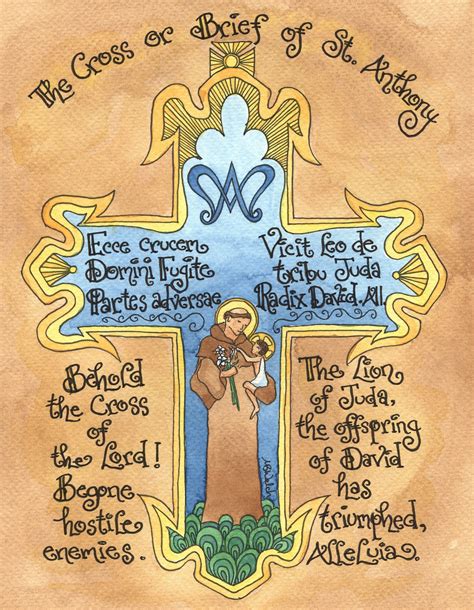 The Cross or Brief of St. Anthony
Ecce crucem
Domini Fugite
Partes adversae
Vicit Leo de
tribu Juda
Radix David. All.
Behold
the Cross
of
the Lord!
Begone
hostile
enemies.
The Lion
of Juda,
the offspring
of David
has
triumphed,
Alleluia.